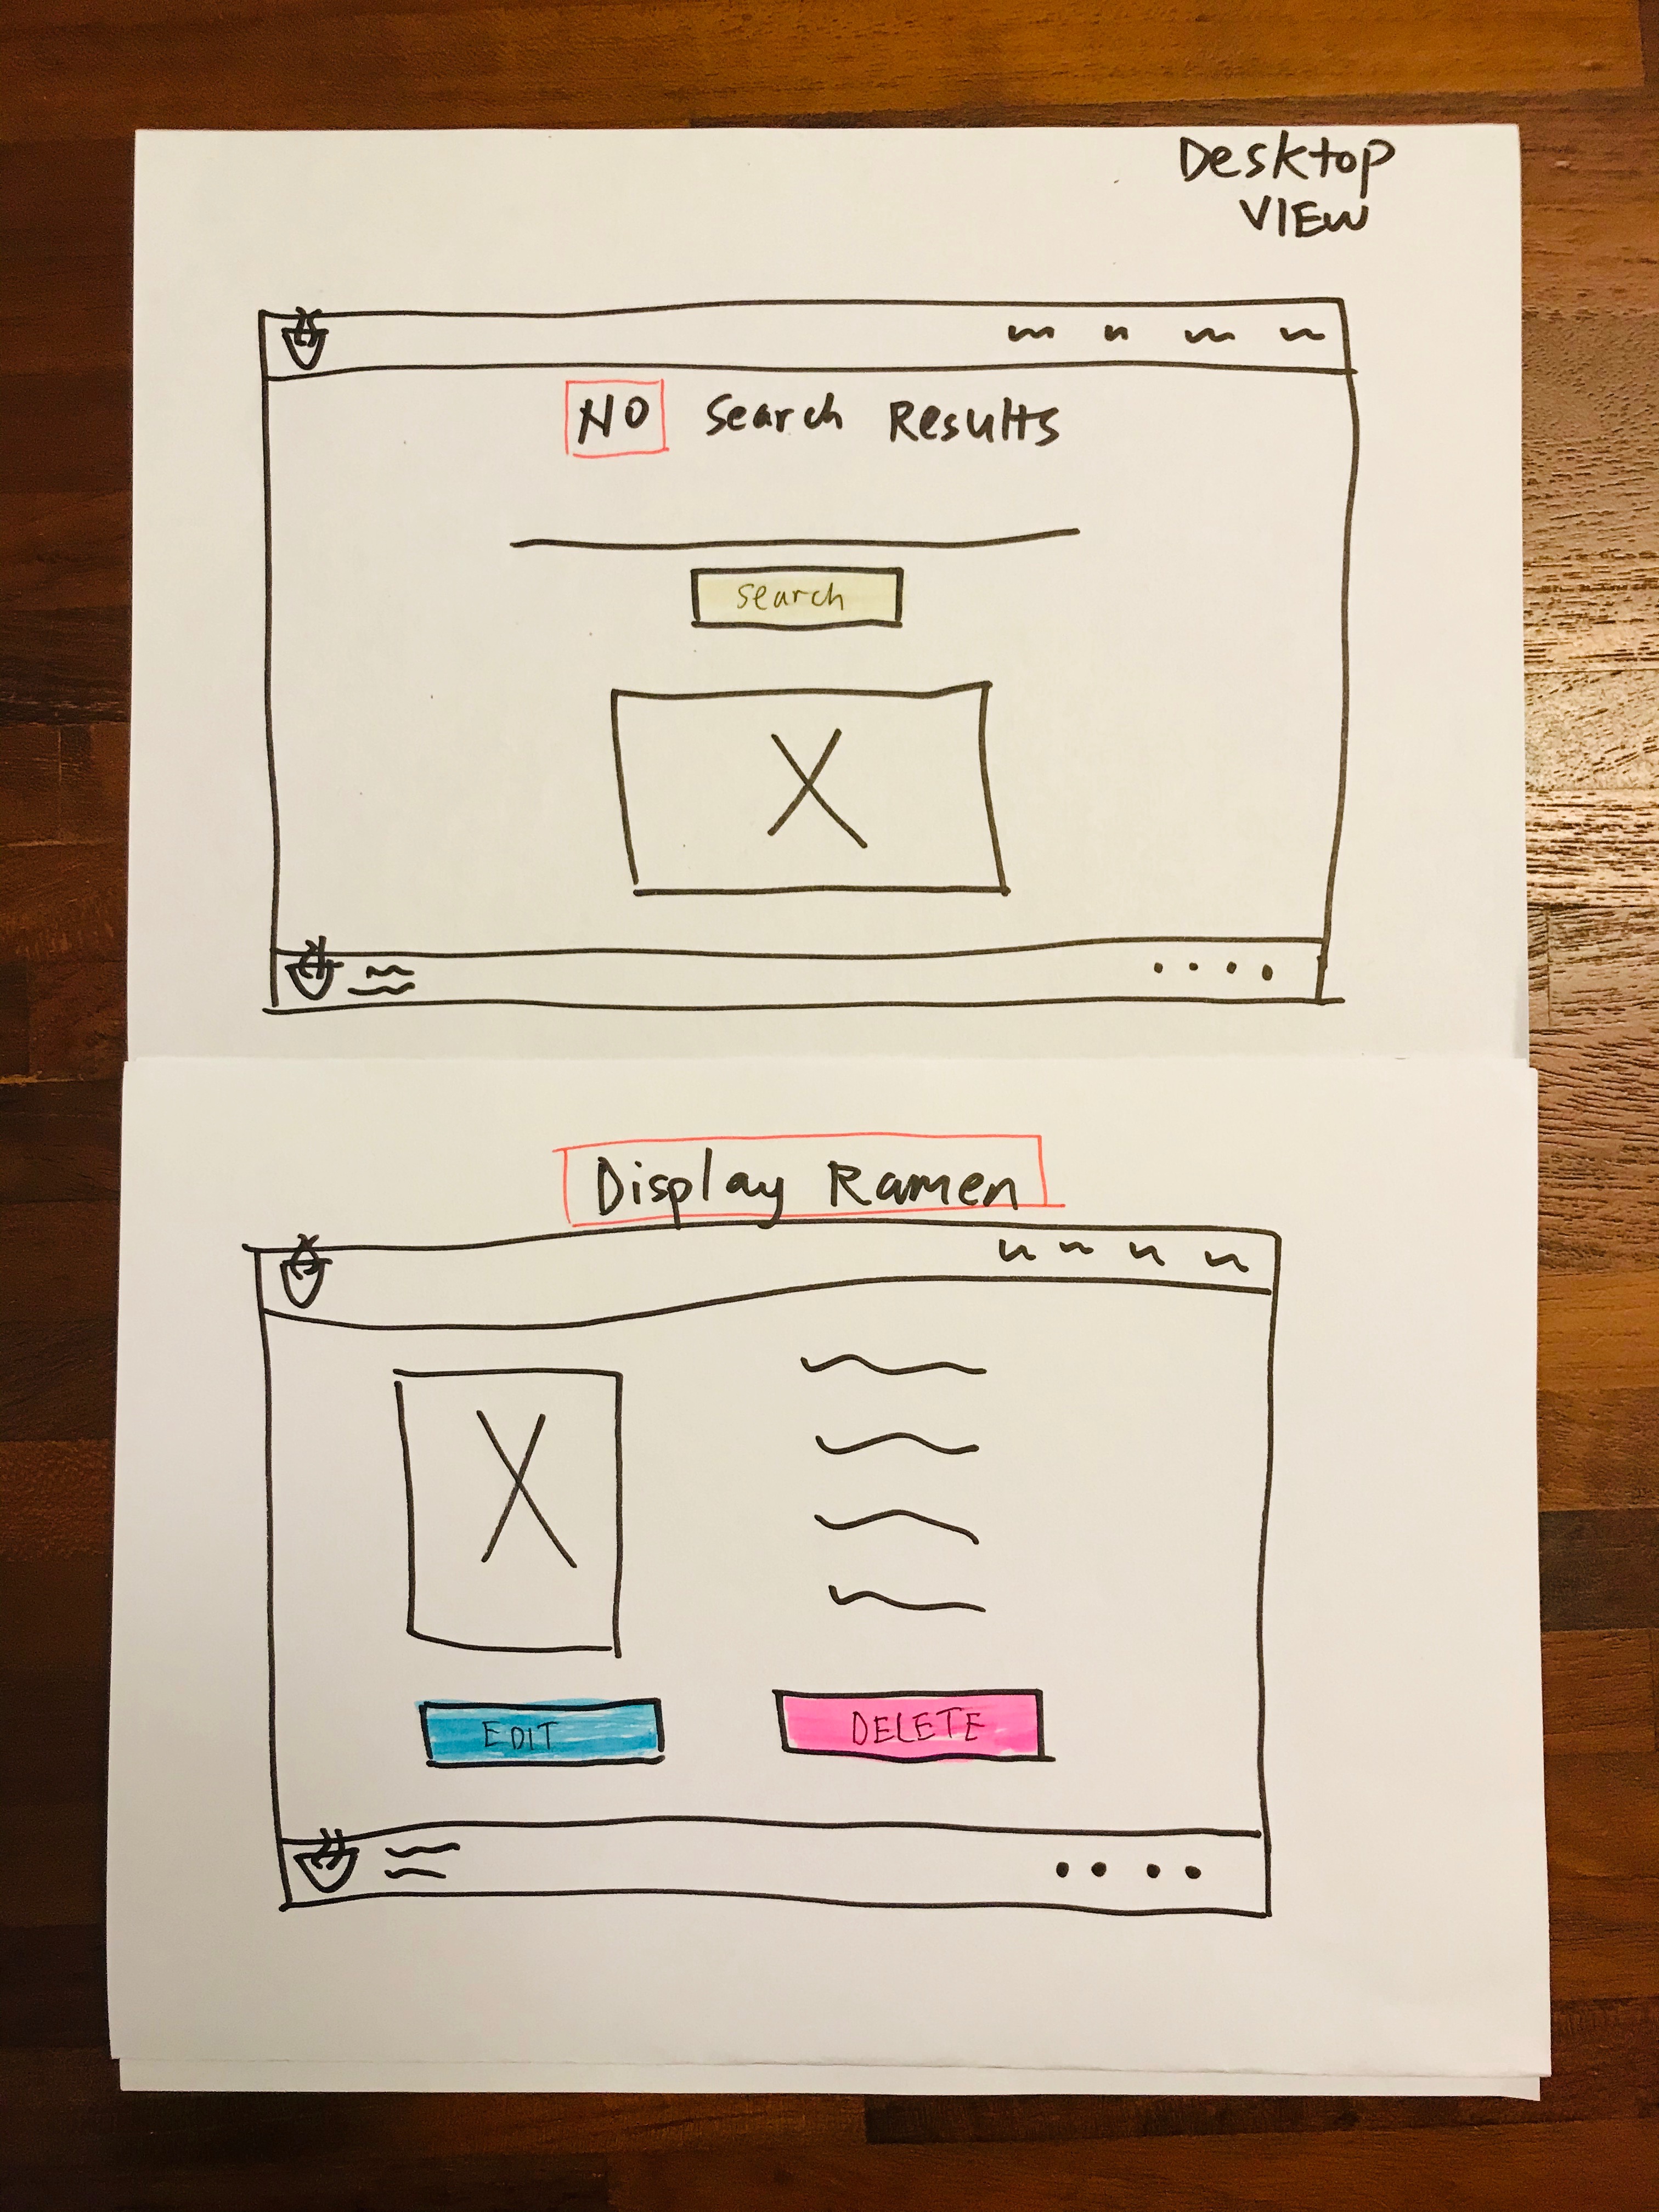 Desktop
VIEW
NO Search Results
search
Display Ramen
EDIT
DELETE